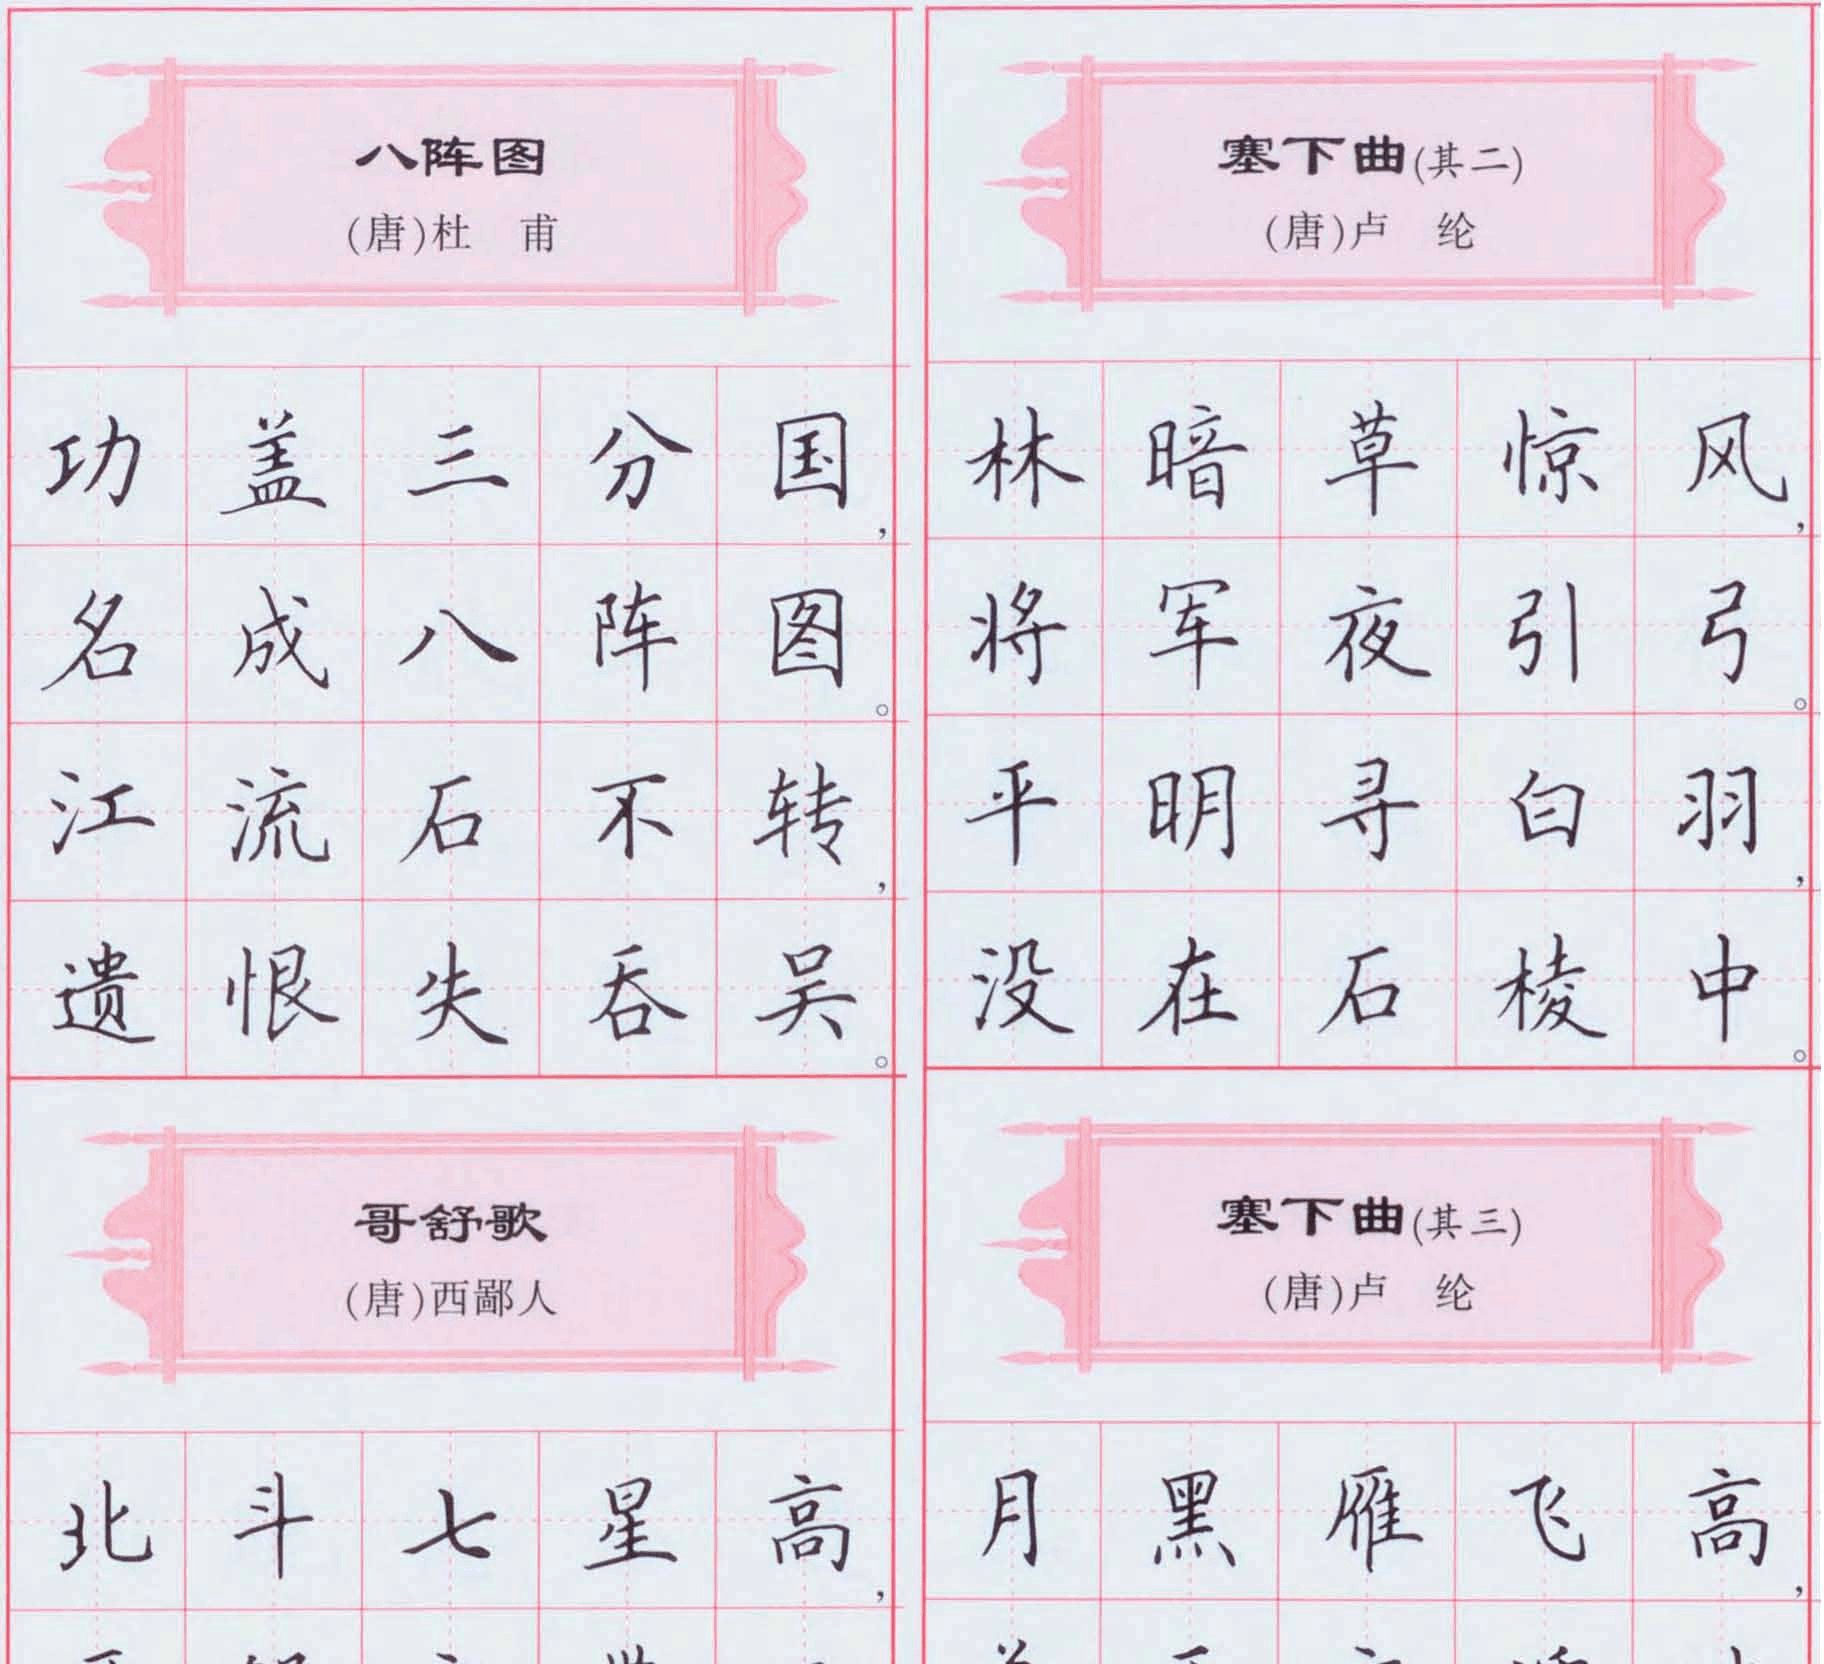 八阵图
(唐)杜 甫
功盖三分国,
名成八阵图。
江流石不转,
遗恨失吞吴。
哥舒歌
(唐)西鄙人
北斗七星高,
塞下曲(其二)
(唐)卢 纶
林暗草惊风,
将军夜引弓。
平明寻白羽,
没在石棱中。
塞下曲(其三)
(唐)卢 纶
月黑雁飞高,